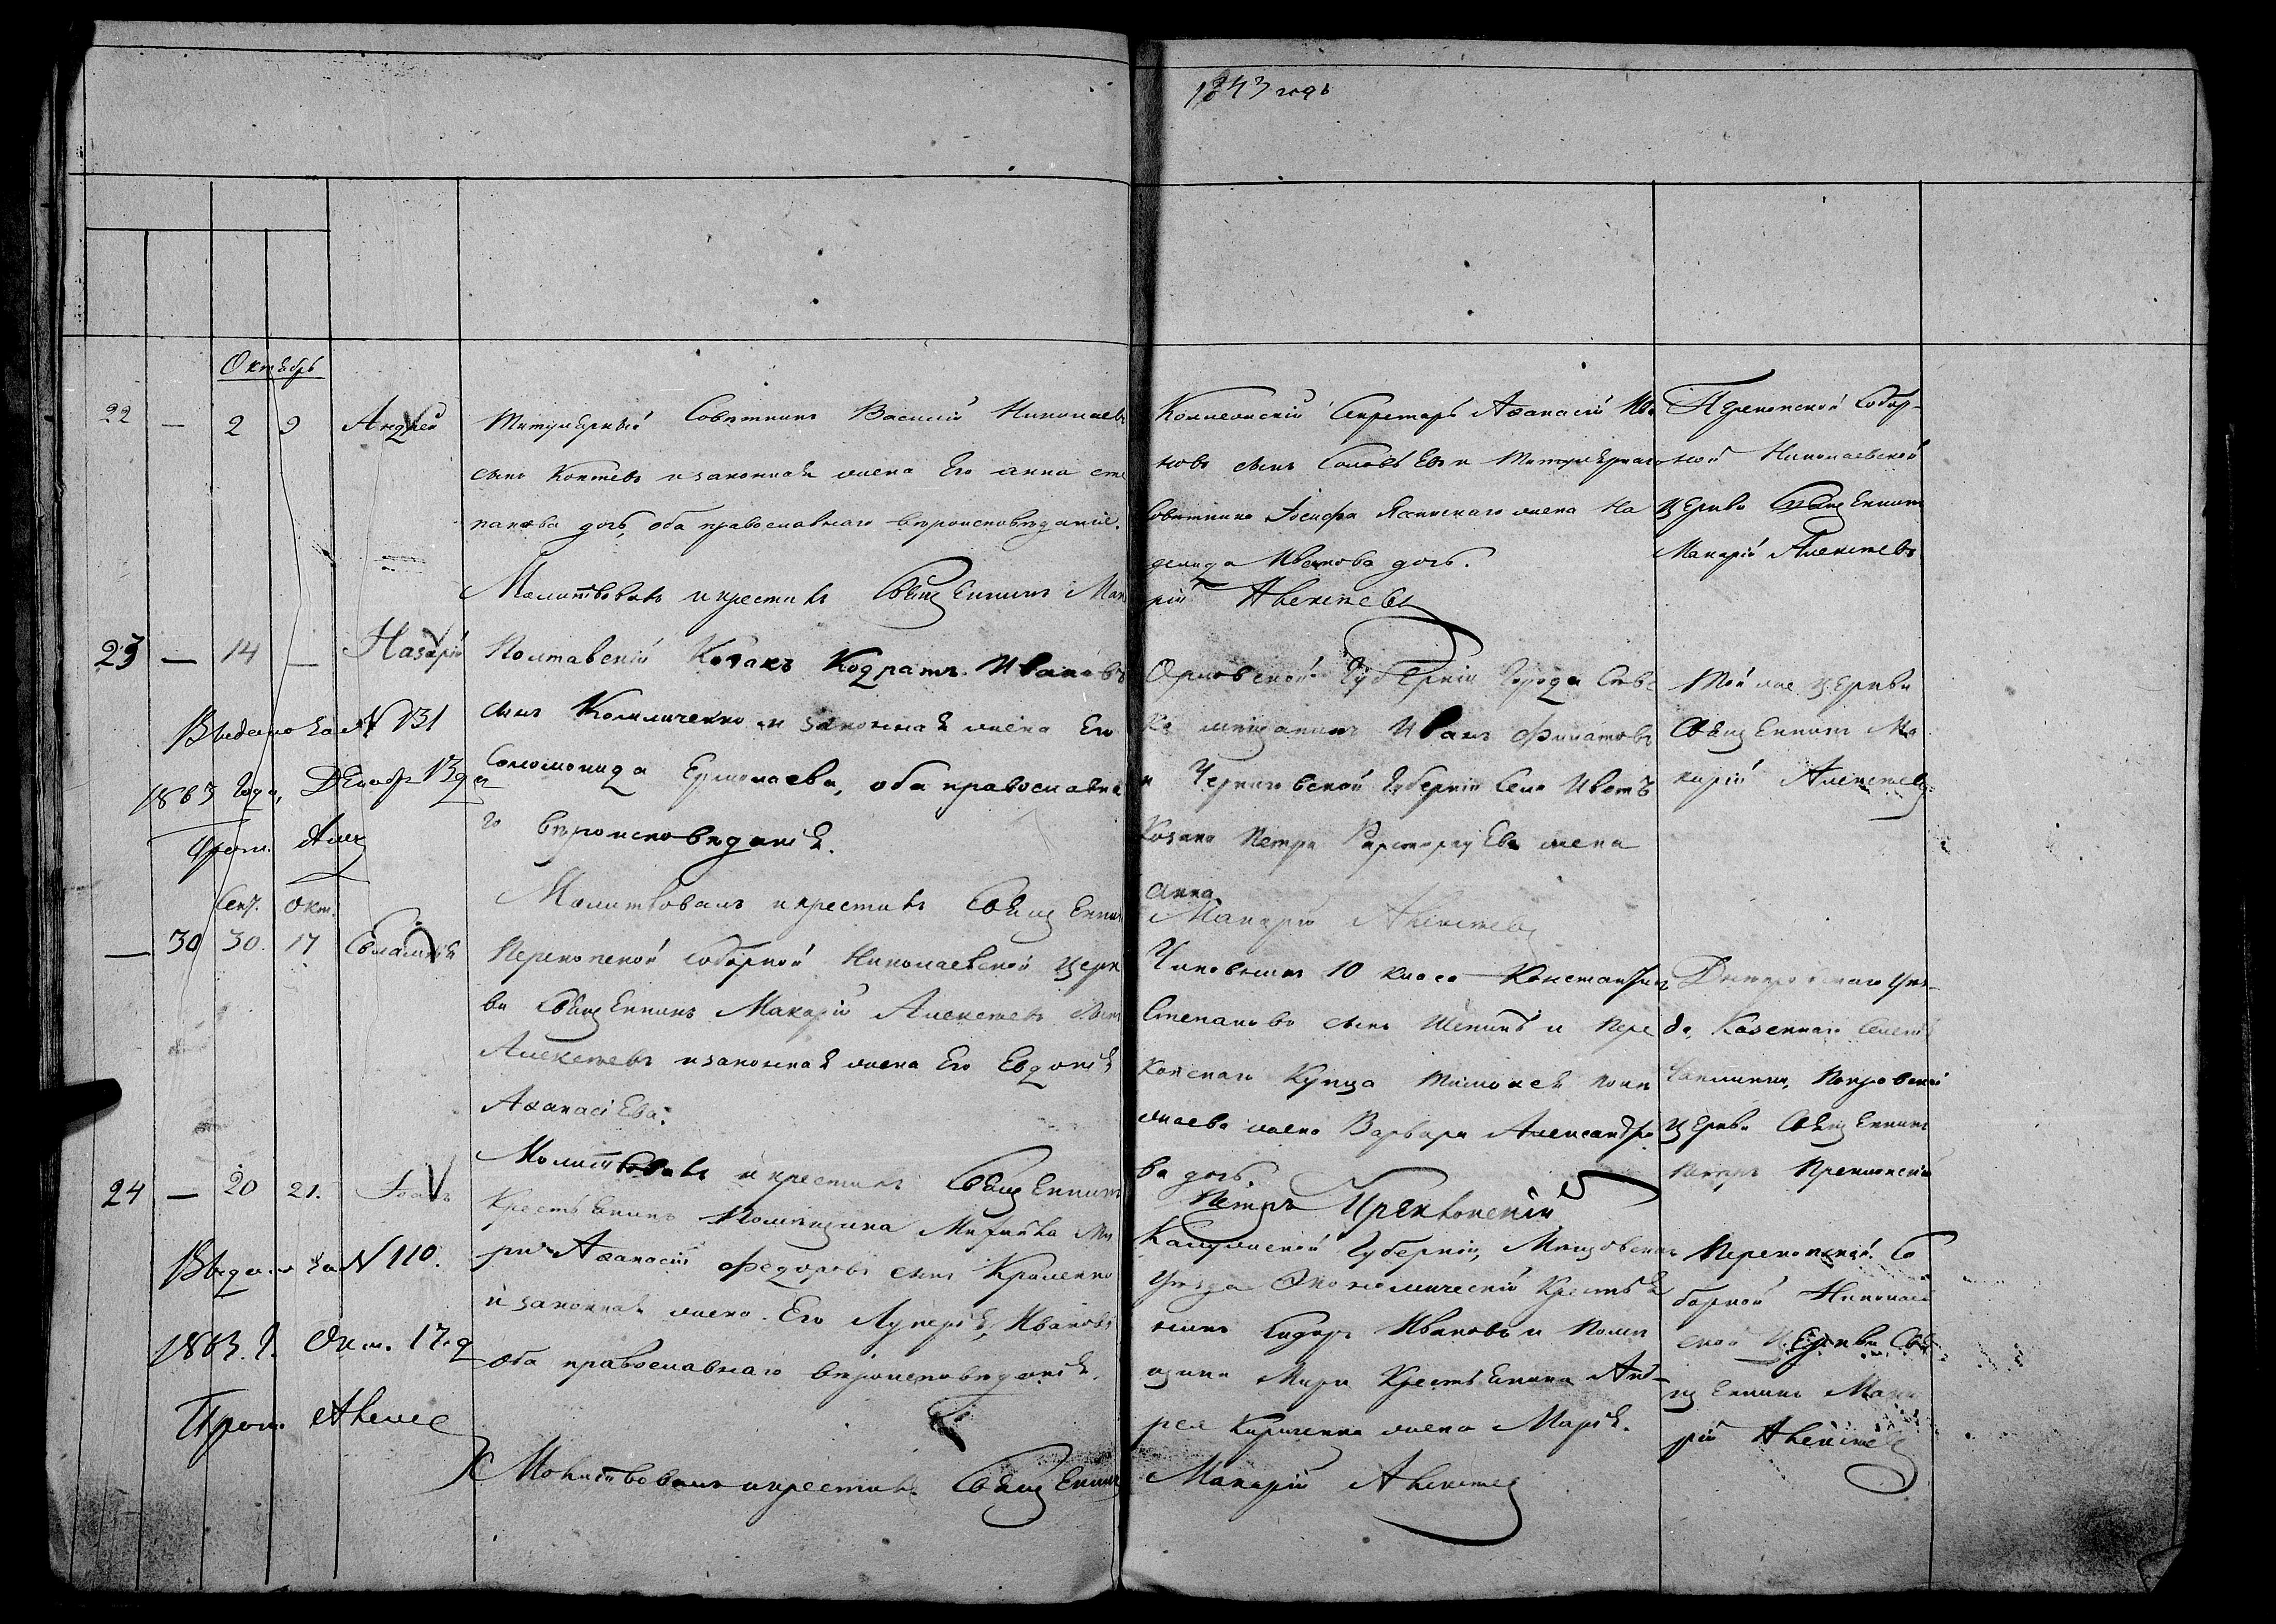 1843 годъ
Октябрь
22 — 2 9 Андрей
Титулярный Советникъ Василий Николаевъ
сынъ Коптевъ и законная жена Его Анна Сте
панова дочь, оба православнаго вероисповедания.
Молитвовалъ и крестилъ Священникъ Мака
Коллежский Секретарь Афанасий Ива
новъ сынъ Соловьевъ и Титулярнаго
Советника Иосифа жена На
дежда Иванова дочь.
рий Алексеевъ
Перекопской Собор-
ной Николаевской
церкви Священникъ
Макарий Алексеевъ
23 — 14 — Назарий
Выдано за № 131
1863 года, Декабр 13 дня
Прот. Алек
Полтавский Козакъ Кодратъ Ивановъ
сынъ Коломиченко и законная жена Его
Соломонида Ермолаева, оба православна
го вероисповедания.
Молитвовалъ и крестилъ Священникъ
Орловской Губернии Города Севс
ка мещанинъ Иванъ Филатовъ
и Черниговской Губернии Села
Козака Петра жена
Анна
Макарий Алексеевъ
Той же церкви
Священникъ Ма
карий Алексеевъ
Сент. Окт.
— 30 30. 17 Евлампия
Перекопской соборной Николаевской Церк
ви Священникъ Макарий Алексеевъ сынъ
Алексеевъ и законная жена Его Евдокия
Афанасиева.
Молитвовалъ и крестилъ Священникъ
Чиновникъ 10 класа Константинъ
Степановъ сынъ и Пере
копскаго Купца Тимофея
жена Варвара Александро
ва дочь.
Петръ Преклонский
Днепровскаго Уез-
да, Казеннаго Селен
Чаплинки, Покровской
церкви Священникъ
Петръ Преклонский
24 — 20 21. Иоаннъ
Выдано за № 110.
1863. г. Окт. 17. д
Прот. Алексе
Крестьянинъ Помещика
Афанасий Федоровъ сынъ Кроленко
и законная жена Его Лукерья Иванова
оба православнаго вероисповедания.
Молитвовалъ и крестилъ Священникъ
Калужской Губернии, Мещовскаго
Уезда Экономический Крестья
нинъ Сидоръ Ивановъ и Поме
щика Мира Крестьянина Анд-
рея Кириченка жена Мария.
Макарий Алексеевъ
Перекопской Со
борной Николаев
ской Церкви Свя
щенникъ Мака
рий Алексеевъ